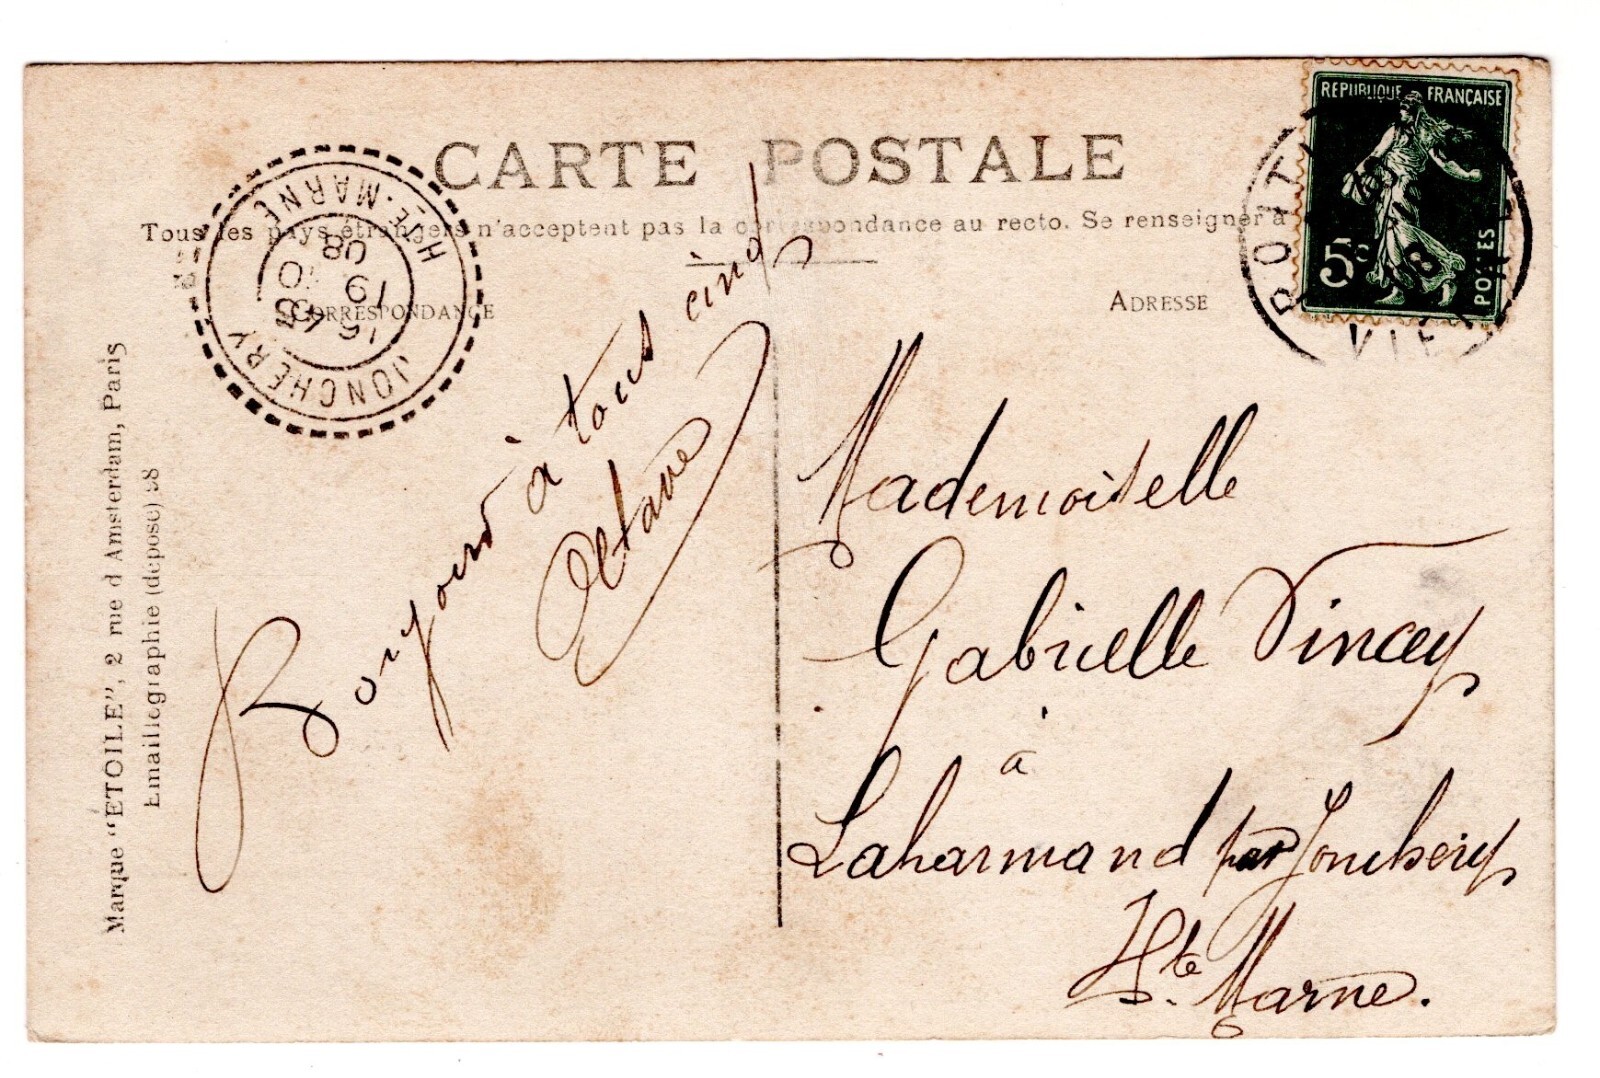 CARTE POSTALE
Tous les pays étrangers n'acceptent pas la correspondance au recto. Se renseigner à
CORRESPONDANCE
ADRESSE
REPUBLIQUE FRANÇAISE
5c
POSTES
JONCHERY
HTE-MARNE
19 10
08
Marque "ÉTOILE", 2 rue d'Amsterdam, Paris
Emaillographie (déposé)
Bonjour à tous cinq
Octave
Mademoiselle
Gabrielle Vincey
à
Laharmand par Jonchery
Hte. Marne.